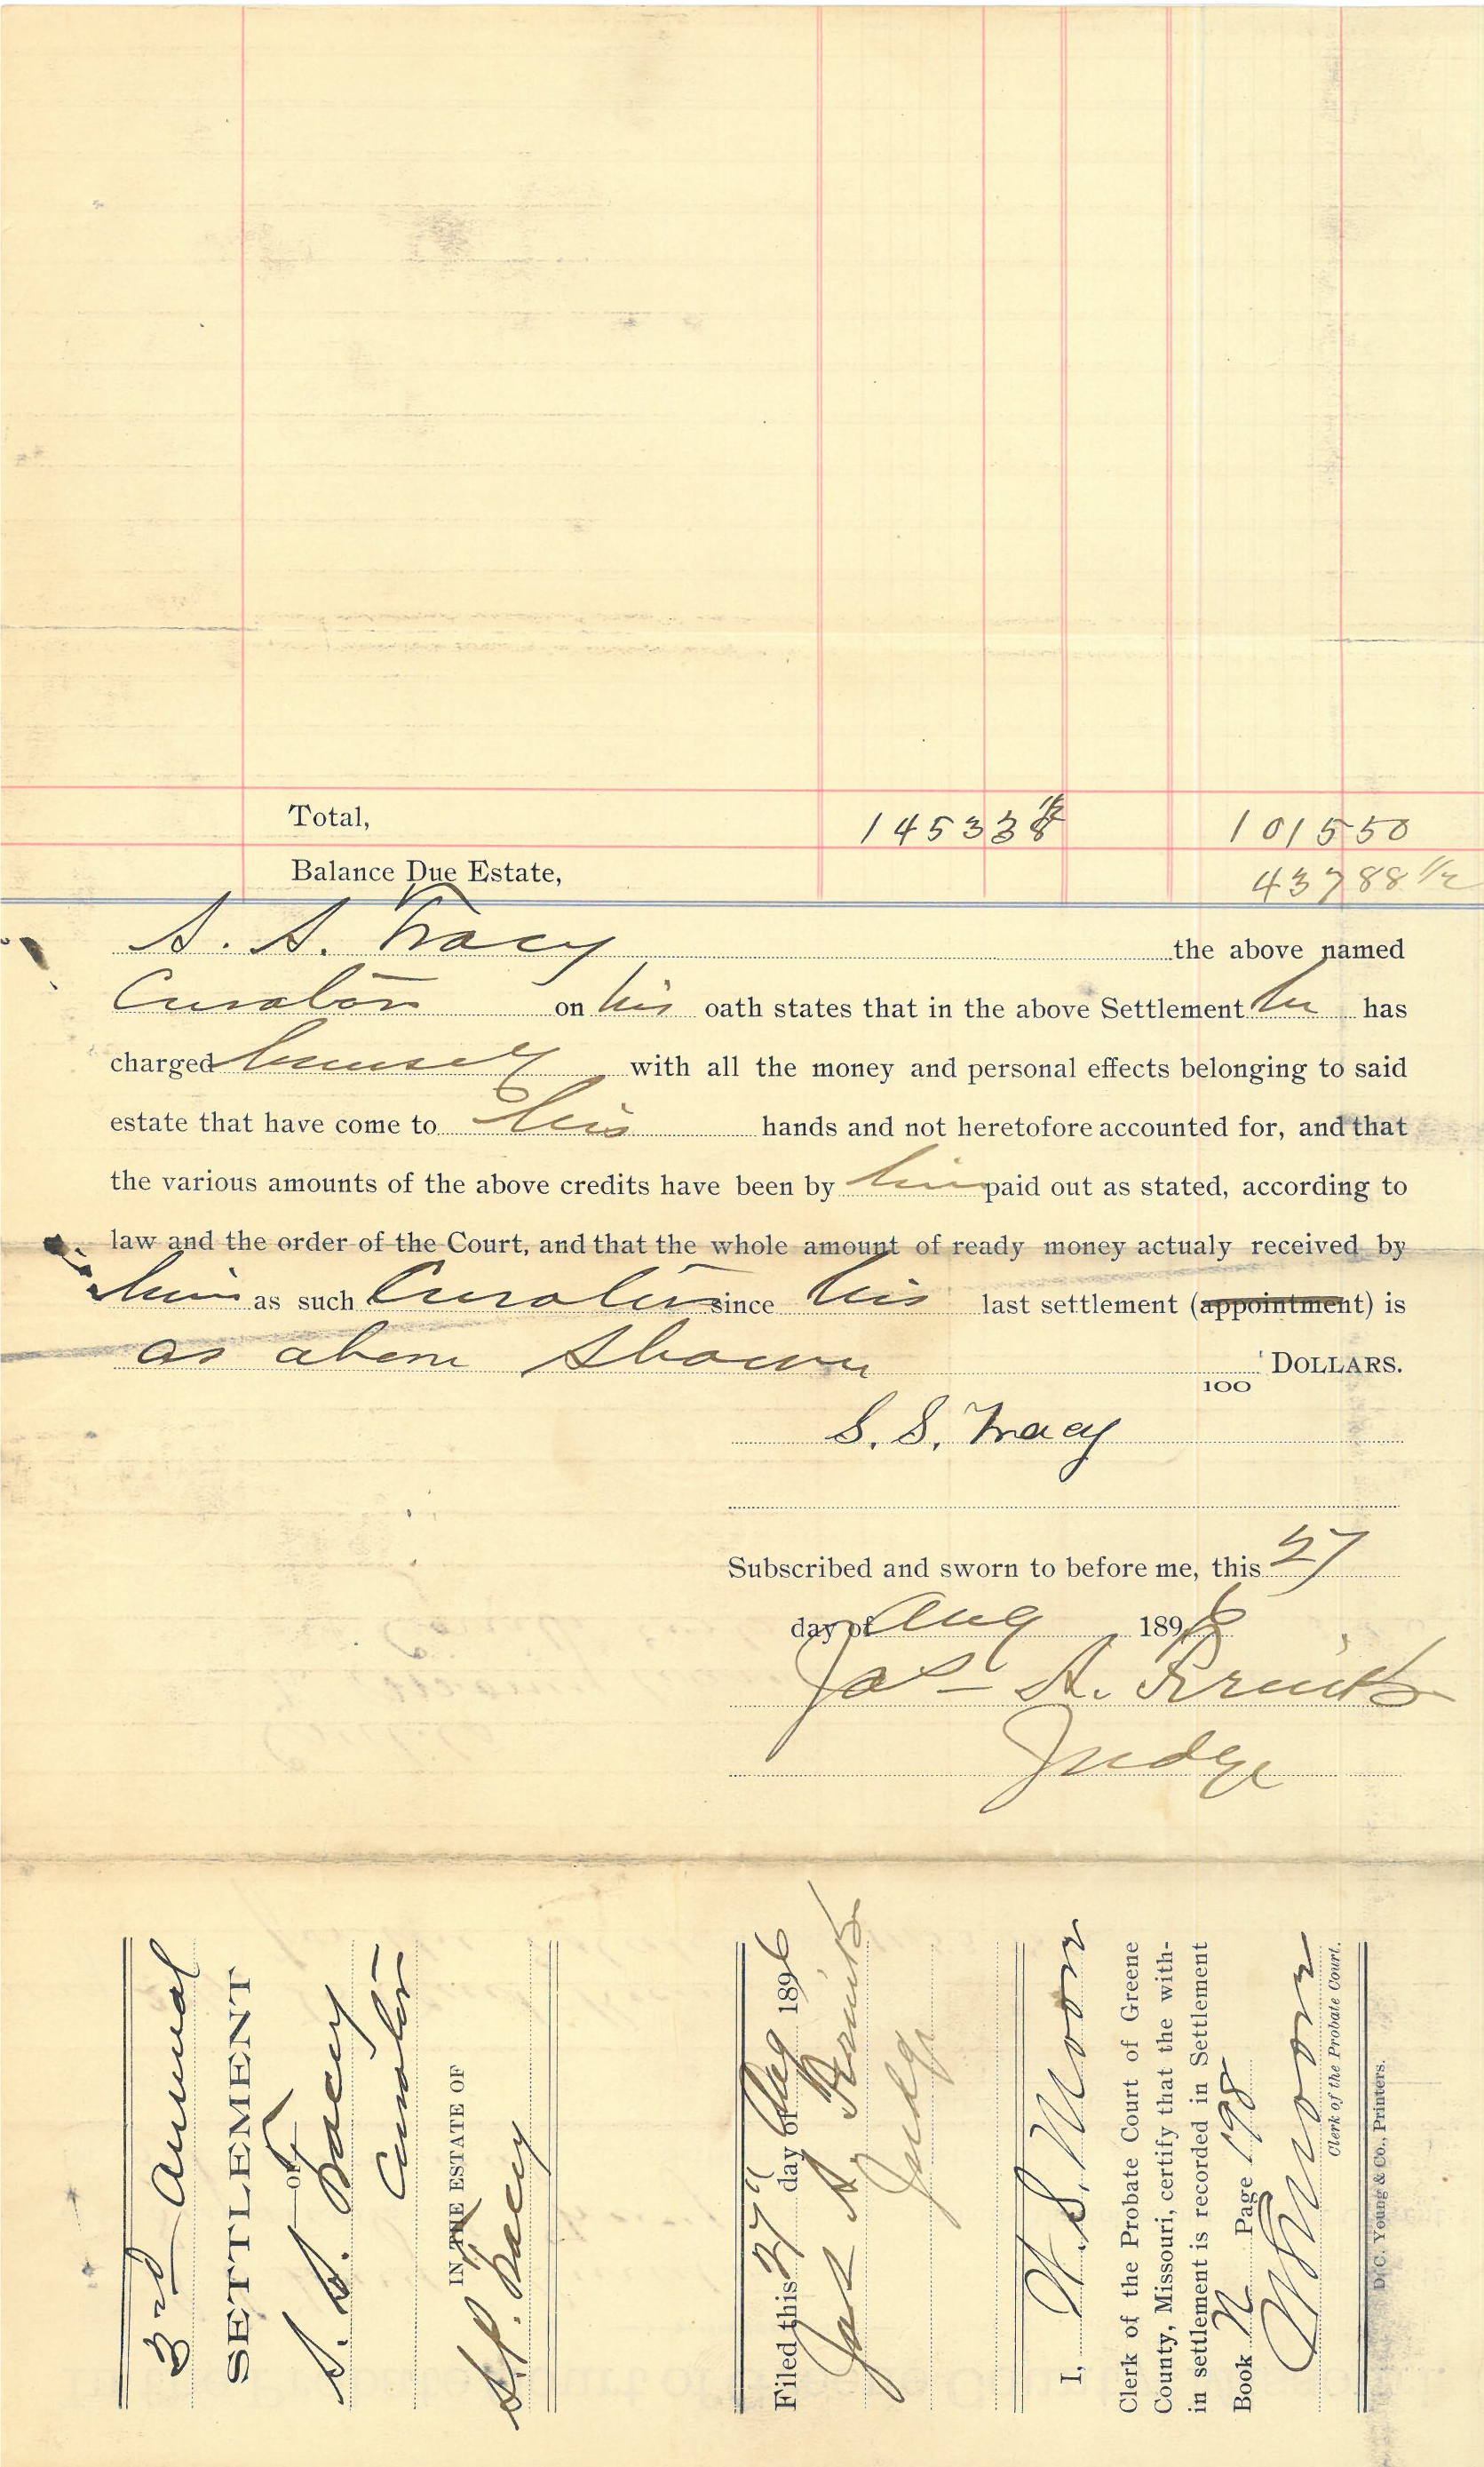 Total, 1453 38 1/2 1015 50
Balance Due Estate, 437 88 1/2
S. S. Tracy the above named
Curator on his oath states that in the above Settlement he has
charged himself with all the money and personal effects belonging to said
estate that have come to his hands and not heretofore accounted for, and that
the various amounts of the above credits have been by him paid out as stated, according to
law and the order of the Court, and that the whole amount of ready money actualy received by
him as such Curator since his last settlement (appointment) is
as above shown 100 DOLLARS.
S. S. Tracy
Subscribed and sworn to before me, this 27
day of Aug 1896
Jas A.
Judge
3rd Annual
SETTLEMENT
—OF—
S. S. Tracy
Curator
IN THE ESTATE OF
S. P. Tracy
Filed this 27" day of Aug 1896
Jas A.
Judge
I, W. S. Moore
Clerk of the Probate Court of Greene
County, Missouri, certify that the with-
in settlement is recorded in Settlement
Book N Page 198
W S Moore
Clerk of the Probate Court.
D. C. Young & Co., Printers.